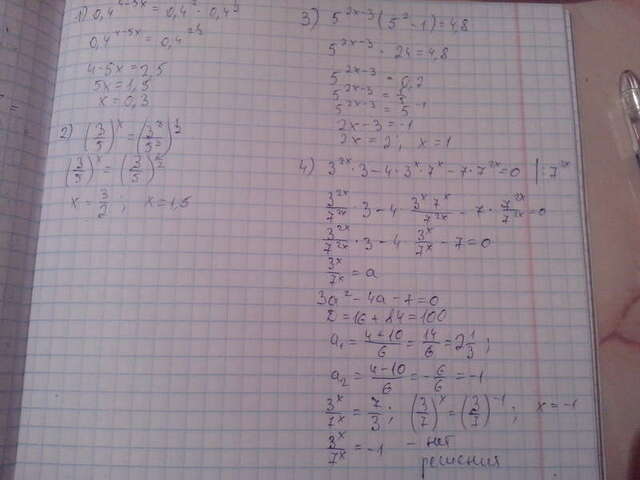 1) 0,4^{4-5x} = 0,4^2 · 0,4^{\frac{1}{2}}
0,4^{4-5x} = 0,4^{2,5}
4-5x = 2,5
5x = 1,5
x = 0,3
2) (3/5)^x = (3^3/5^3)^{1/2}
(3/5)^x = (3/5)^{3/2}
x = 3/2 ; x = 1,5
3) 5^{2x-3} (5^2 - 1) = 4,8
5^{2x-3} · 24 = 4,8
5^{2x-3} = 0,2
5^{2x-3} = 1/5
5^{2x-3} = 5^{-1}
2x-3 = -1
2x = 2 ; x = 1
4) 3^{2x} · 3 - 4 · 3^x · 7^x - 7 · 7^{2x} = 0 | : 7^{2x}
3^{2x}/7^{2x} · 3 - 4 · 3^x 7^x/7^{2x} - 7 · 7^{2x}/7^{2x} = 0
3^{2x}/7^{2x} · 3 - 4 · 3^x/7^x - 7 = 0
3^x/7^x = a
3a^2 - 4a - 7 = 0
D = 16 + 84 = 100
a_1 = (4+10)/6 = 14/6 = 2 1/3 ;
a_2 = (4-10)/6 = -6/6 = -1
3^x/7^x = 7/3 ; (3/7)^x = (3/7)^{-1} ; x = -1
3^x/7^x = -1 - нет
решения